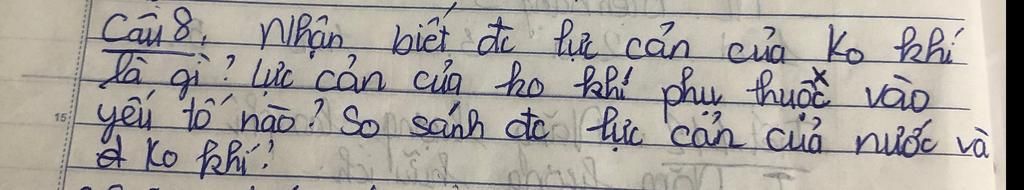 Câu 8. Nhận biết đc lực cản của ko khí
là gì? lực cản của ko khí phụ thuộc vào
yếu tố nào? So sánh đc lực cản của nước và
ko khí?